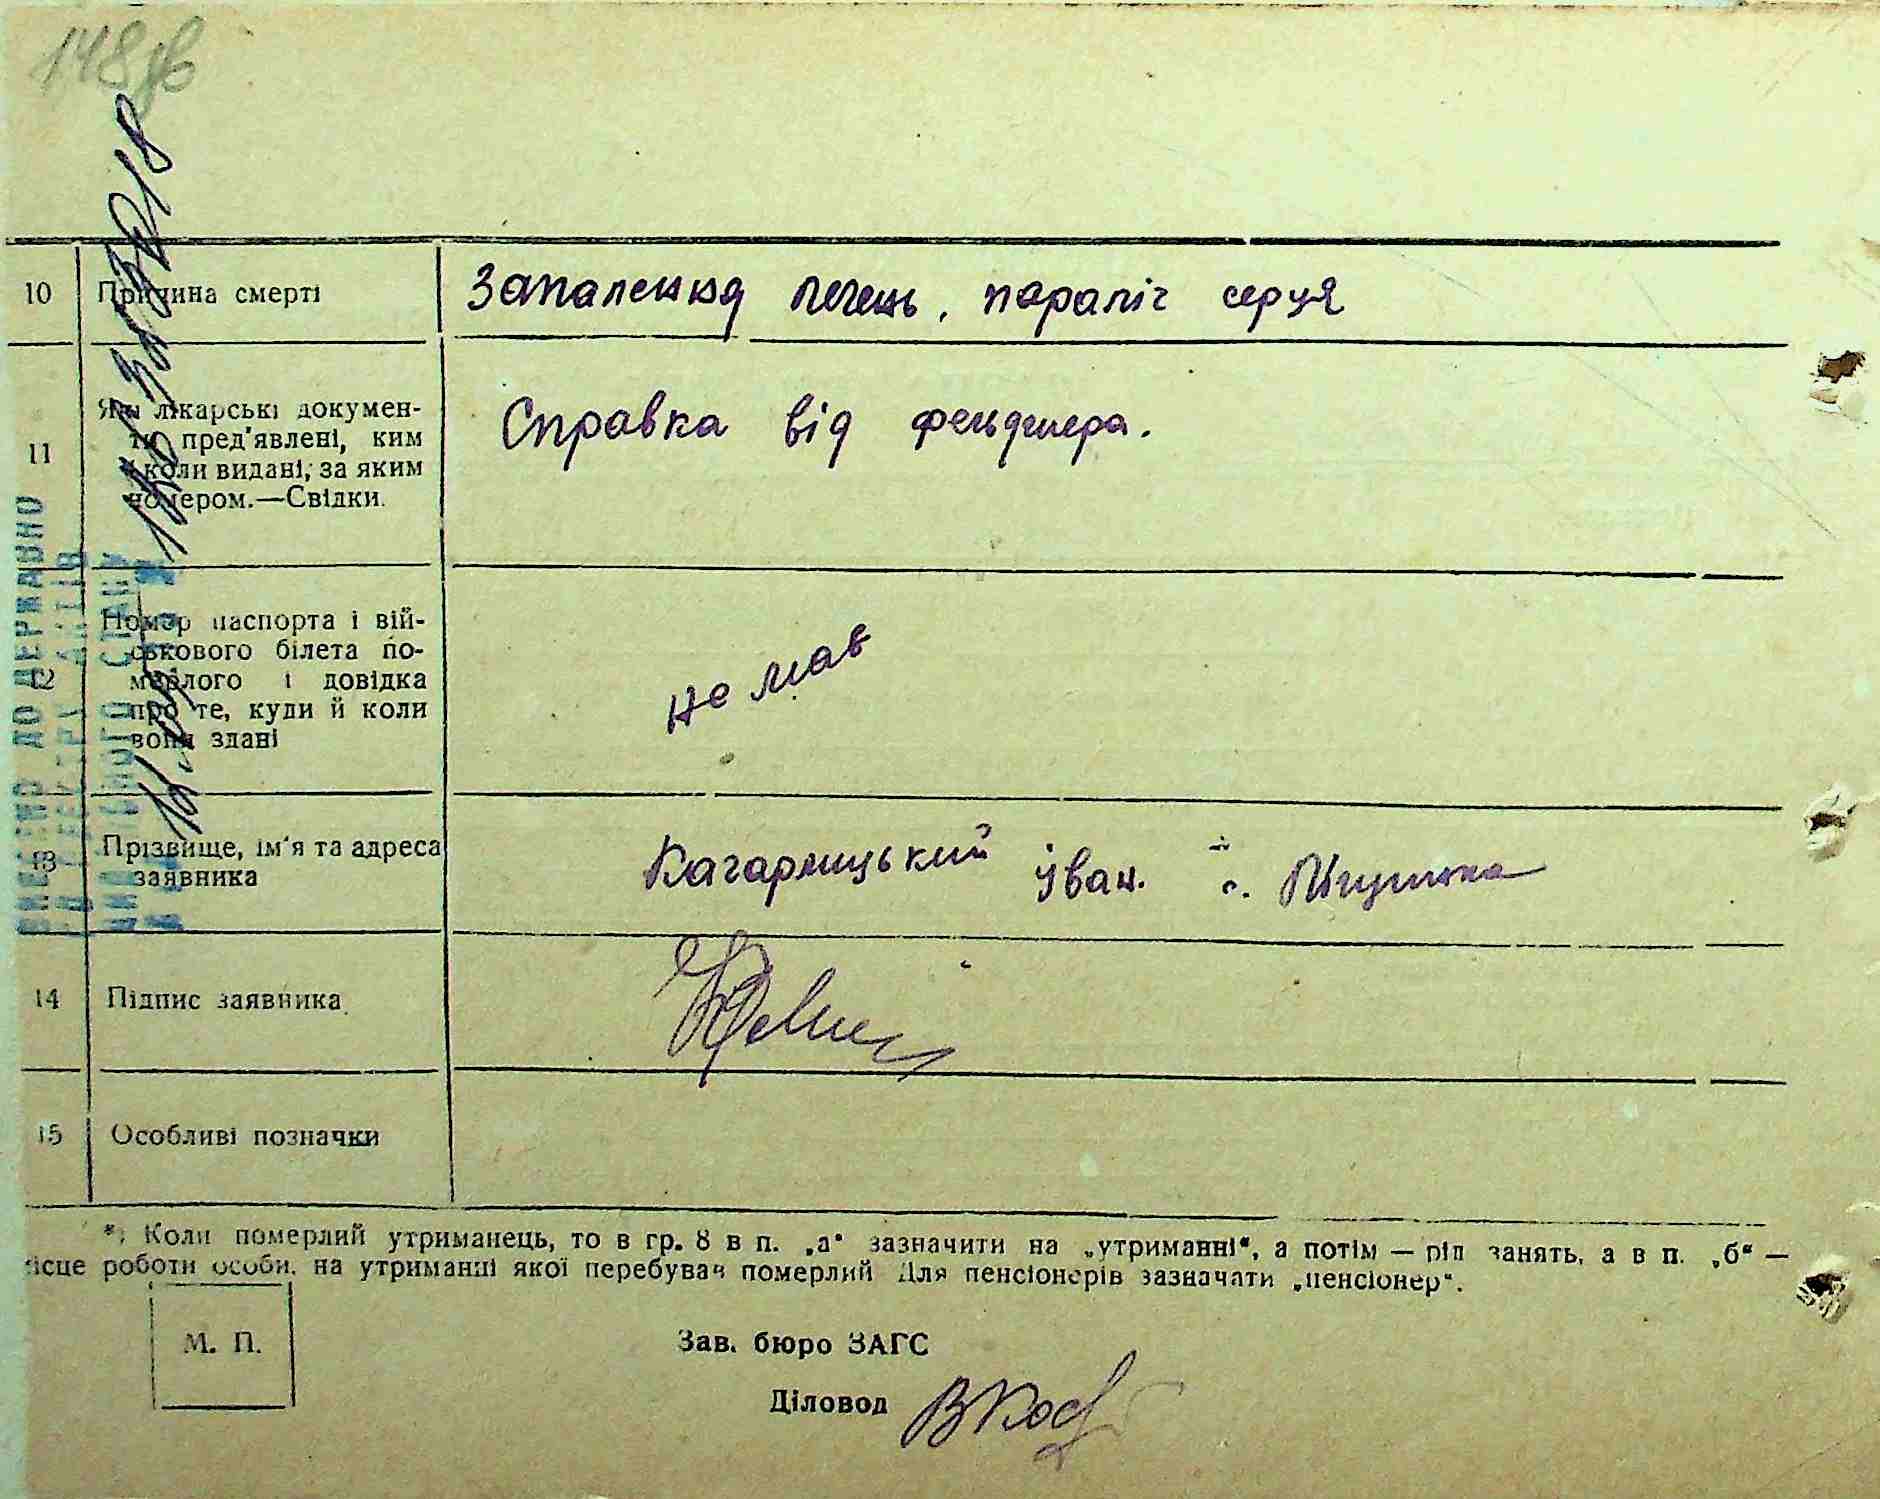 148 зв
10 Причина смерті Запалення печень, параліч серця
11 Які лікарські докумен-
ти пред'явлені, ким
і коли видані, за яким
номером.—Свідки.
Справка від фельдшера.
12 Номер паспорта і вій-
ськового білета по-
мерлого і довідка
про те, куди й коли
вони здані
не мав
13 Прізвище, ім'я та адреса
заявника
Кагарлицький Іван. с.
14 Підпис заявника
15 Особливі позначки
*) Коли померлий утриманець, то в гр. 8 в п. „а" зазначити на „утриманні", а потім — рід занять, а в п. „б" —
місце роботи особи, на утриманні якої перебував померлий Для пенсіонерів зазначати „пенсіонер".
М. П.
Зав. бюро ЗАГС
Діловод
ВНЕСЕНО ДО ДЕРЖАВНО
ГО РЕЄСТРУ АКТІВ
ЦИВІЛЬНОГО СТАНУ